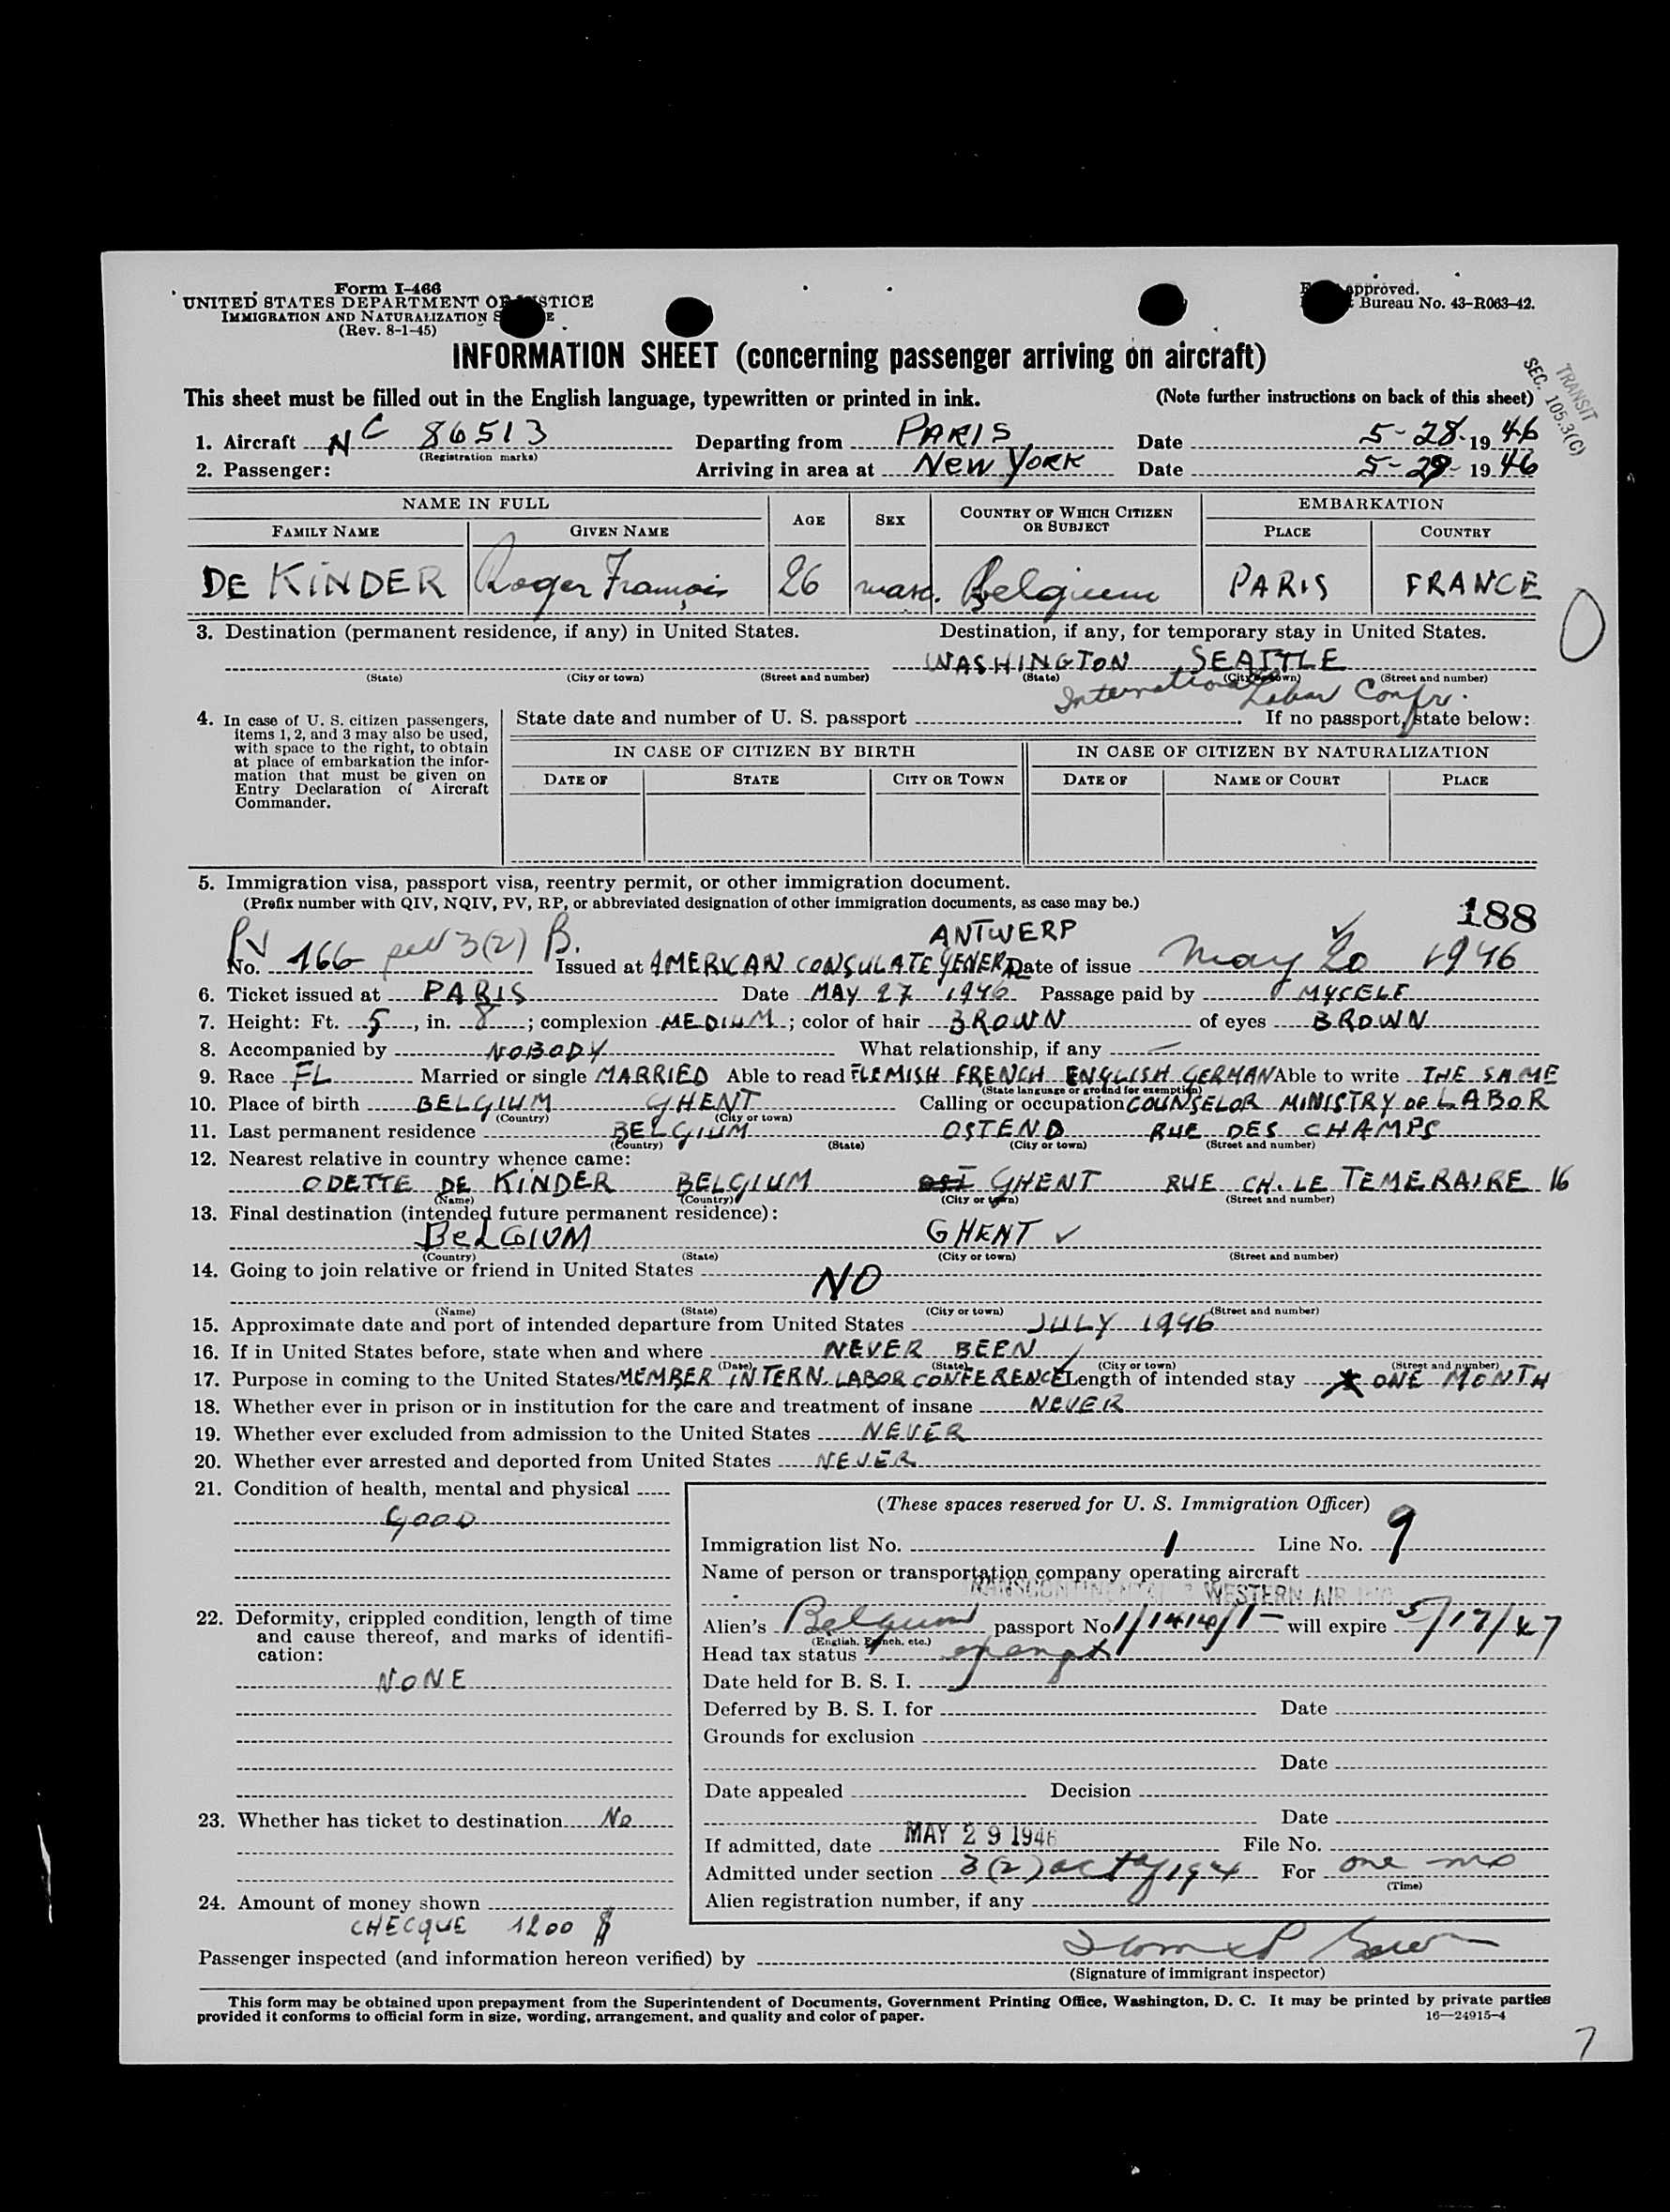 Form I-466
UNITED STATES DEPARTMENT OF JUSTICE
IMMIGRATION AND NATURALIZATION
(Rev. 8-1-45)
approved.
Bureau No. 43-R063-42.
INFORMATION SHEET (concerning passenger arriving on aircraft)
TRANSIT
SEC. 105.3(C)
This sheet must be filled out in the English language, typewritten or printed in ink. (Note further instructions on back of this sheet)
1. Aircraft NC 86513 Departing from PARIS Date 5-28-1946
(Registration marks)
2. Passenger: Arriving in area at NEW YORK Date 5-29-1946
NAME IN FULL AGE SEX COUNTRY OF WHICH CITIZEN OR SUBJECT EMBARKATION
FAMILY NAME GIVEN NAME PLACE COUNTRY
DE KINDER Roger François 26 masc. Belgium PARIS FRANCE
0
3. Destination (permanent residence, if any) in United States. Destination, if any, for temporary stay in United States.
WASHINGTON SEATTLE
(State) (City or town) (Street and number) (State) (City or town) (Street and number)
International Labor Confr.
4. In case of U. S. citizen passengers, items 1, 2, and 3 may also be used, with space to the right, to obtain at place of embarkation the information that must be given on Entry Declaration of Aircraft Commander.
State date and number of U. S. passport If no passport, state below:
IN CASE OF CITIZEN BY BIRTH IN CASE OF CITIZEN BY NATURALIZATION
DATE OF STATE CITY OR TOWN DATE OF NAME OF COURT PLACE
5. Immigration visa, passport visa, reentry permit, or other immigration document.
(Prefix number with QIV, NQIV, PV, RP, or abbreviated designation of other immigration documents, as case may be.)
188
ANTWERP
PV No. 166 3(2) B. Issued at AMERICAN CONSULATE GENER Date of issue May 20 1946
6. Ticket issued at PARIS Date MAY 27 1946 Passage paid by MYSELF
7. Height: Ft. 5, in. 8; complexion MEDIUM; color of hair BROWN of eyes BROWN
8. Accompanied by NOBODY What relationship, if any —
9. Race FL Married or single MARRIED Able to read FLEMISH FRENCH ENGLISH GERMAN Able to write THE SAME
(State language or ground for exemption)
10. Place of birth BELGIUM GHENT Calling or occupation COUNSELOR MINISTRY OF LABOR
(Country) (City or town)
11. Last permanent residence BELGIUM OSTEND RUE DES CHAMPS
(Country) (State) (City or town) (Street and number)
12. Nearest relative in country whence came:
ODETTE DE KINDER BELGIUM GHENT RUE CH. LE TEMERAIRE 16
(Name) (Country) (City or town) (Street and number)
13. Final destination (intended future permanent residence):
BELGIUM GHENT ✓
(Country) (State) (City or town) (Street and number)
14. Going to join relative or friend in United States NO
(Name) (State) (City or town) (Street and number)
15. Approximate date and port of intended departure from United States JULY 1946
16. If in United States before, state when and where NEVER BEEN
(Date) (State) (City or town) (Street and number)
17. Purpose in coming to the United States MEMBER INTERN. LABOR CONFERENCE Length of intended stay ONE MONTH
18. Whether ever in prison or in institution for the care and treatment of insane NEVER
19. Whether ever excluded from admission to the United States NEVER
20. Whether ever arrested and deported from United States NEVER
21. Condition of health, mental and physical
GOOD
22. Deformity, crippled condition, length of time and cause thereof, and marks of identification:
NONE
23. Whether has ticket to destination No
24. Amount of money shown
CHECQUE 1200 $
(These spaces reserved for U. S. Immigration Officer)
Immigration list No. 1 Line No. 9
Name of person or transportation company operating aircraft
TRANSCONTINENTAL & WESTERN AIR INC
Alien's Belgium passport No 1/1414/1— will expire 5/17/47
(English, French, etc.)
Head tax status exempt
Date held for B. S. I.
Deferred by B. S. I. for Date
Grounds for exclusion
Date
Date appealed Decision
Date
If admitted, date MAY 29 1946 File No.
Admitted under section 3(2) act of 1924 For one mo
(Time)
Alien registration number, if any
Passenger inspected (and information hereon verified) by
(Signature of immigrant inspector)
This form may be obtained upon prepayment from the Superintendent of Documents, Government Printing Office, Washington, D. C. It may be printed by private parties
provided it conforms to official form in size, wording, arrangement, and quality and color of paper. 16—24915-4
7